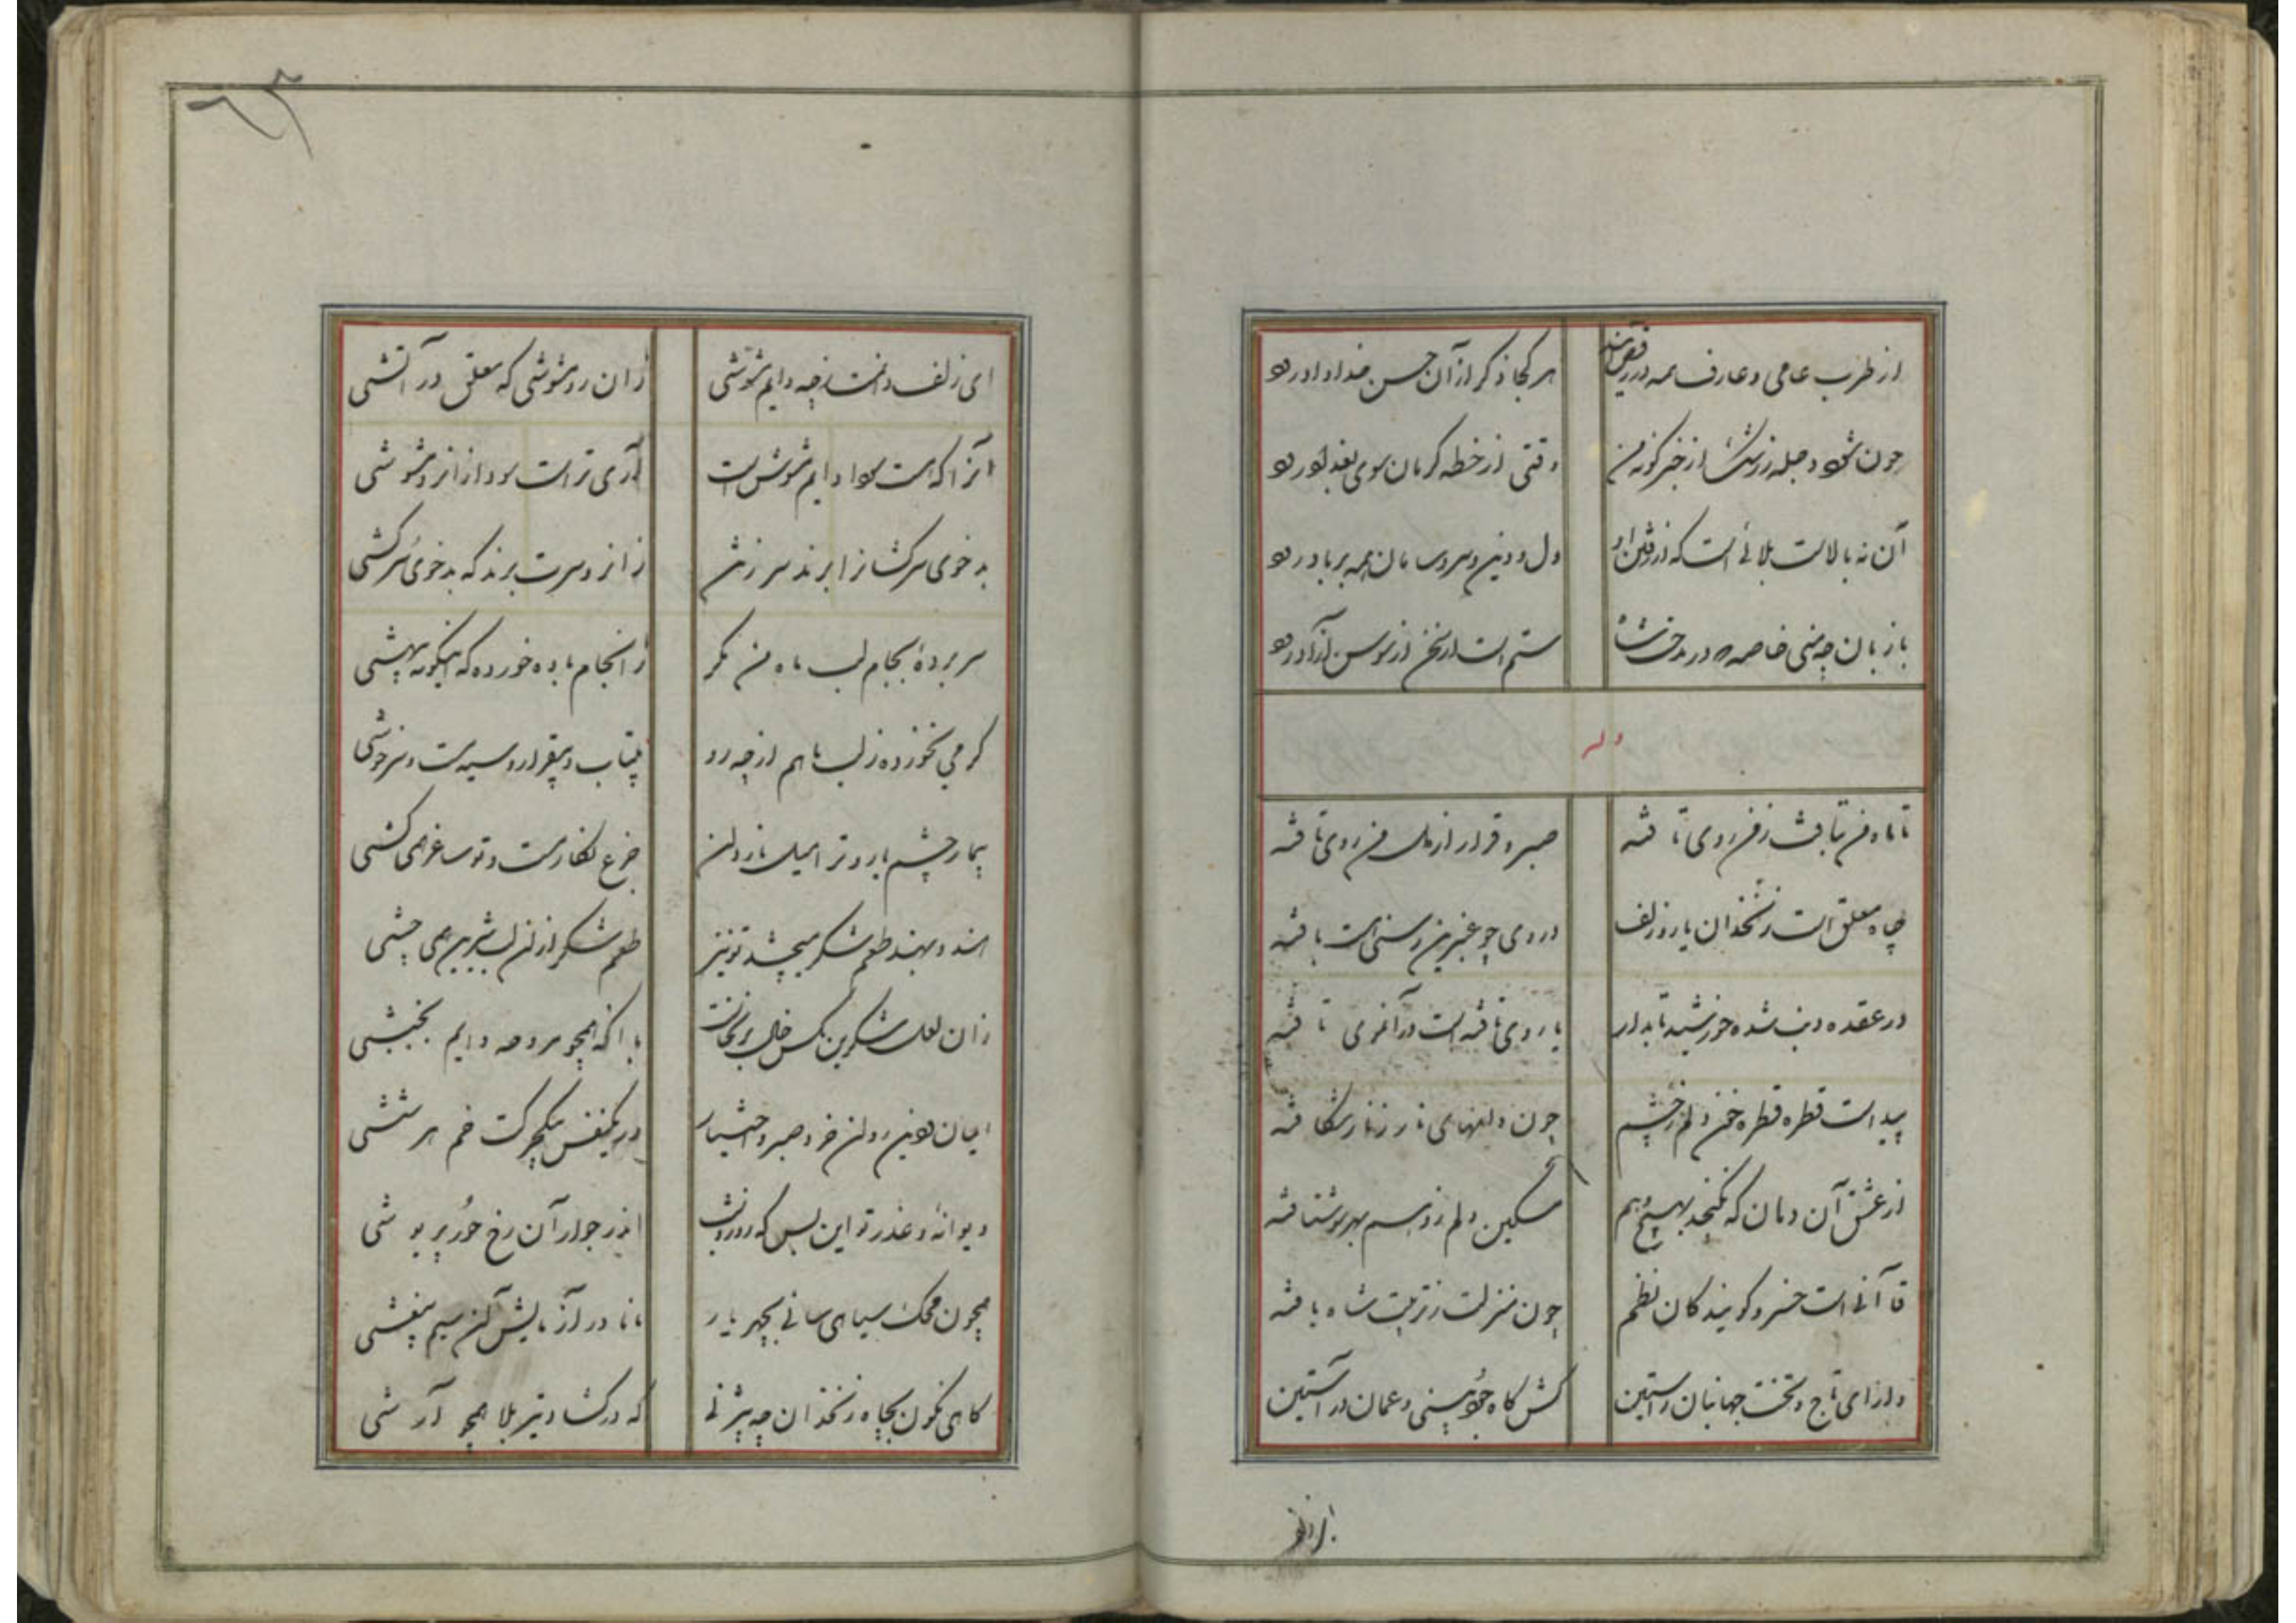 از طرب عامی و عارف همه در رقص آیند
هر کجا ذکر از آن حسن خداداد رود
چون شود دجله ز رشک از خبر گونه من
وقتی از خطه کرمان سوی بغداد رود
آن نه بالاست بلائی است که از رفتن او
دل و دین و سر و سامان همه بر باد رود
با زبان چو منی خاصه در مدحت شاه
ستم است ار سخن از سوسن آزاد رود
وله
تا ماه من بتافت ز من روی تافته
صبر و قرار از دل من روی تافته
چاه معلق است زنخدان یار و زلف
در وی چو عنبرین رسنی است بافته
در عقده ذنب شده خورشید تابدار
یا روی تافته است در آن موی تافته
پیداست قطره قطره خون دلم ز چشم
چون دانهای نار ز نار شکافته
از عشق آن دهان که نگنجد بهیچ وهم
مسکین دلم ز وسم بهر سو شتافته
قاآنی است خسرو گویندگان نظم
چون منزلت ز تربیت شاه یافته
دارای تاج و تخت جهانبان راستین
کش گاه جود بینی و عمان در آستین
ای زلف دانمت ز چه دایم مشوشی
زان رو مشوشی که معلق در آتشی
آنرا که هست سودا دایم مشوش است
آری تراست سودا زانرو مشوشی
بدخوی سرکشانرا برند سر ز تن
زانرو سرت برند که بدخوی سرکشی
سر بردهٔ بجام لب ماه من مگر
زانجام باده خورده که اینگونه بیهشی
گر می نخورده ز لب ما هم از چه رو
بیتاب و بیقرار و سیه مست و سرخوشی
بیمار چشم یار و ترا میل ناردان
جزع نگار مست و تو ساغر همی کشی
هندو بهند طعم شکر میچشد تو نیز
طعم شکر از آن لب شیرین همی چشی
زان لعل شکرین مگس خال بر نخاست
با آنکه همچو مروحه دایم بجنبشی
ایمان و دین و دل خرد و صبر و اختیار
در یکنفس بیک حرکت خصم هر ششی
دیوانهٔ و عذر تو این بس که روز و شب
اندر جوار آن رخ حور پریوشی
همچون محک سیاهی سائی بچهر یار
مانا در آزمایش آن سیم بیغشی
گاهی نگون بچاه زنخدان چو بیژنی
گه در گشاد تیر بلا همچو آرشی